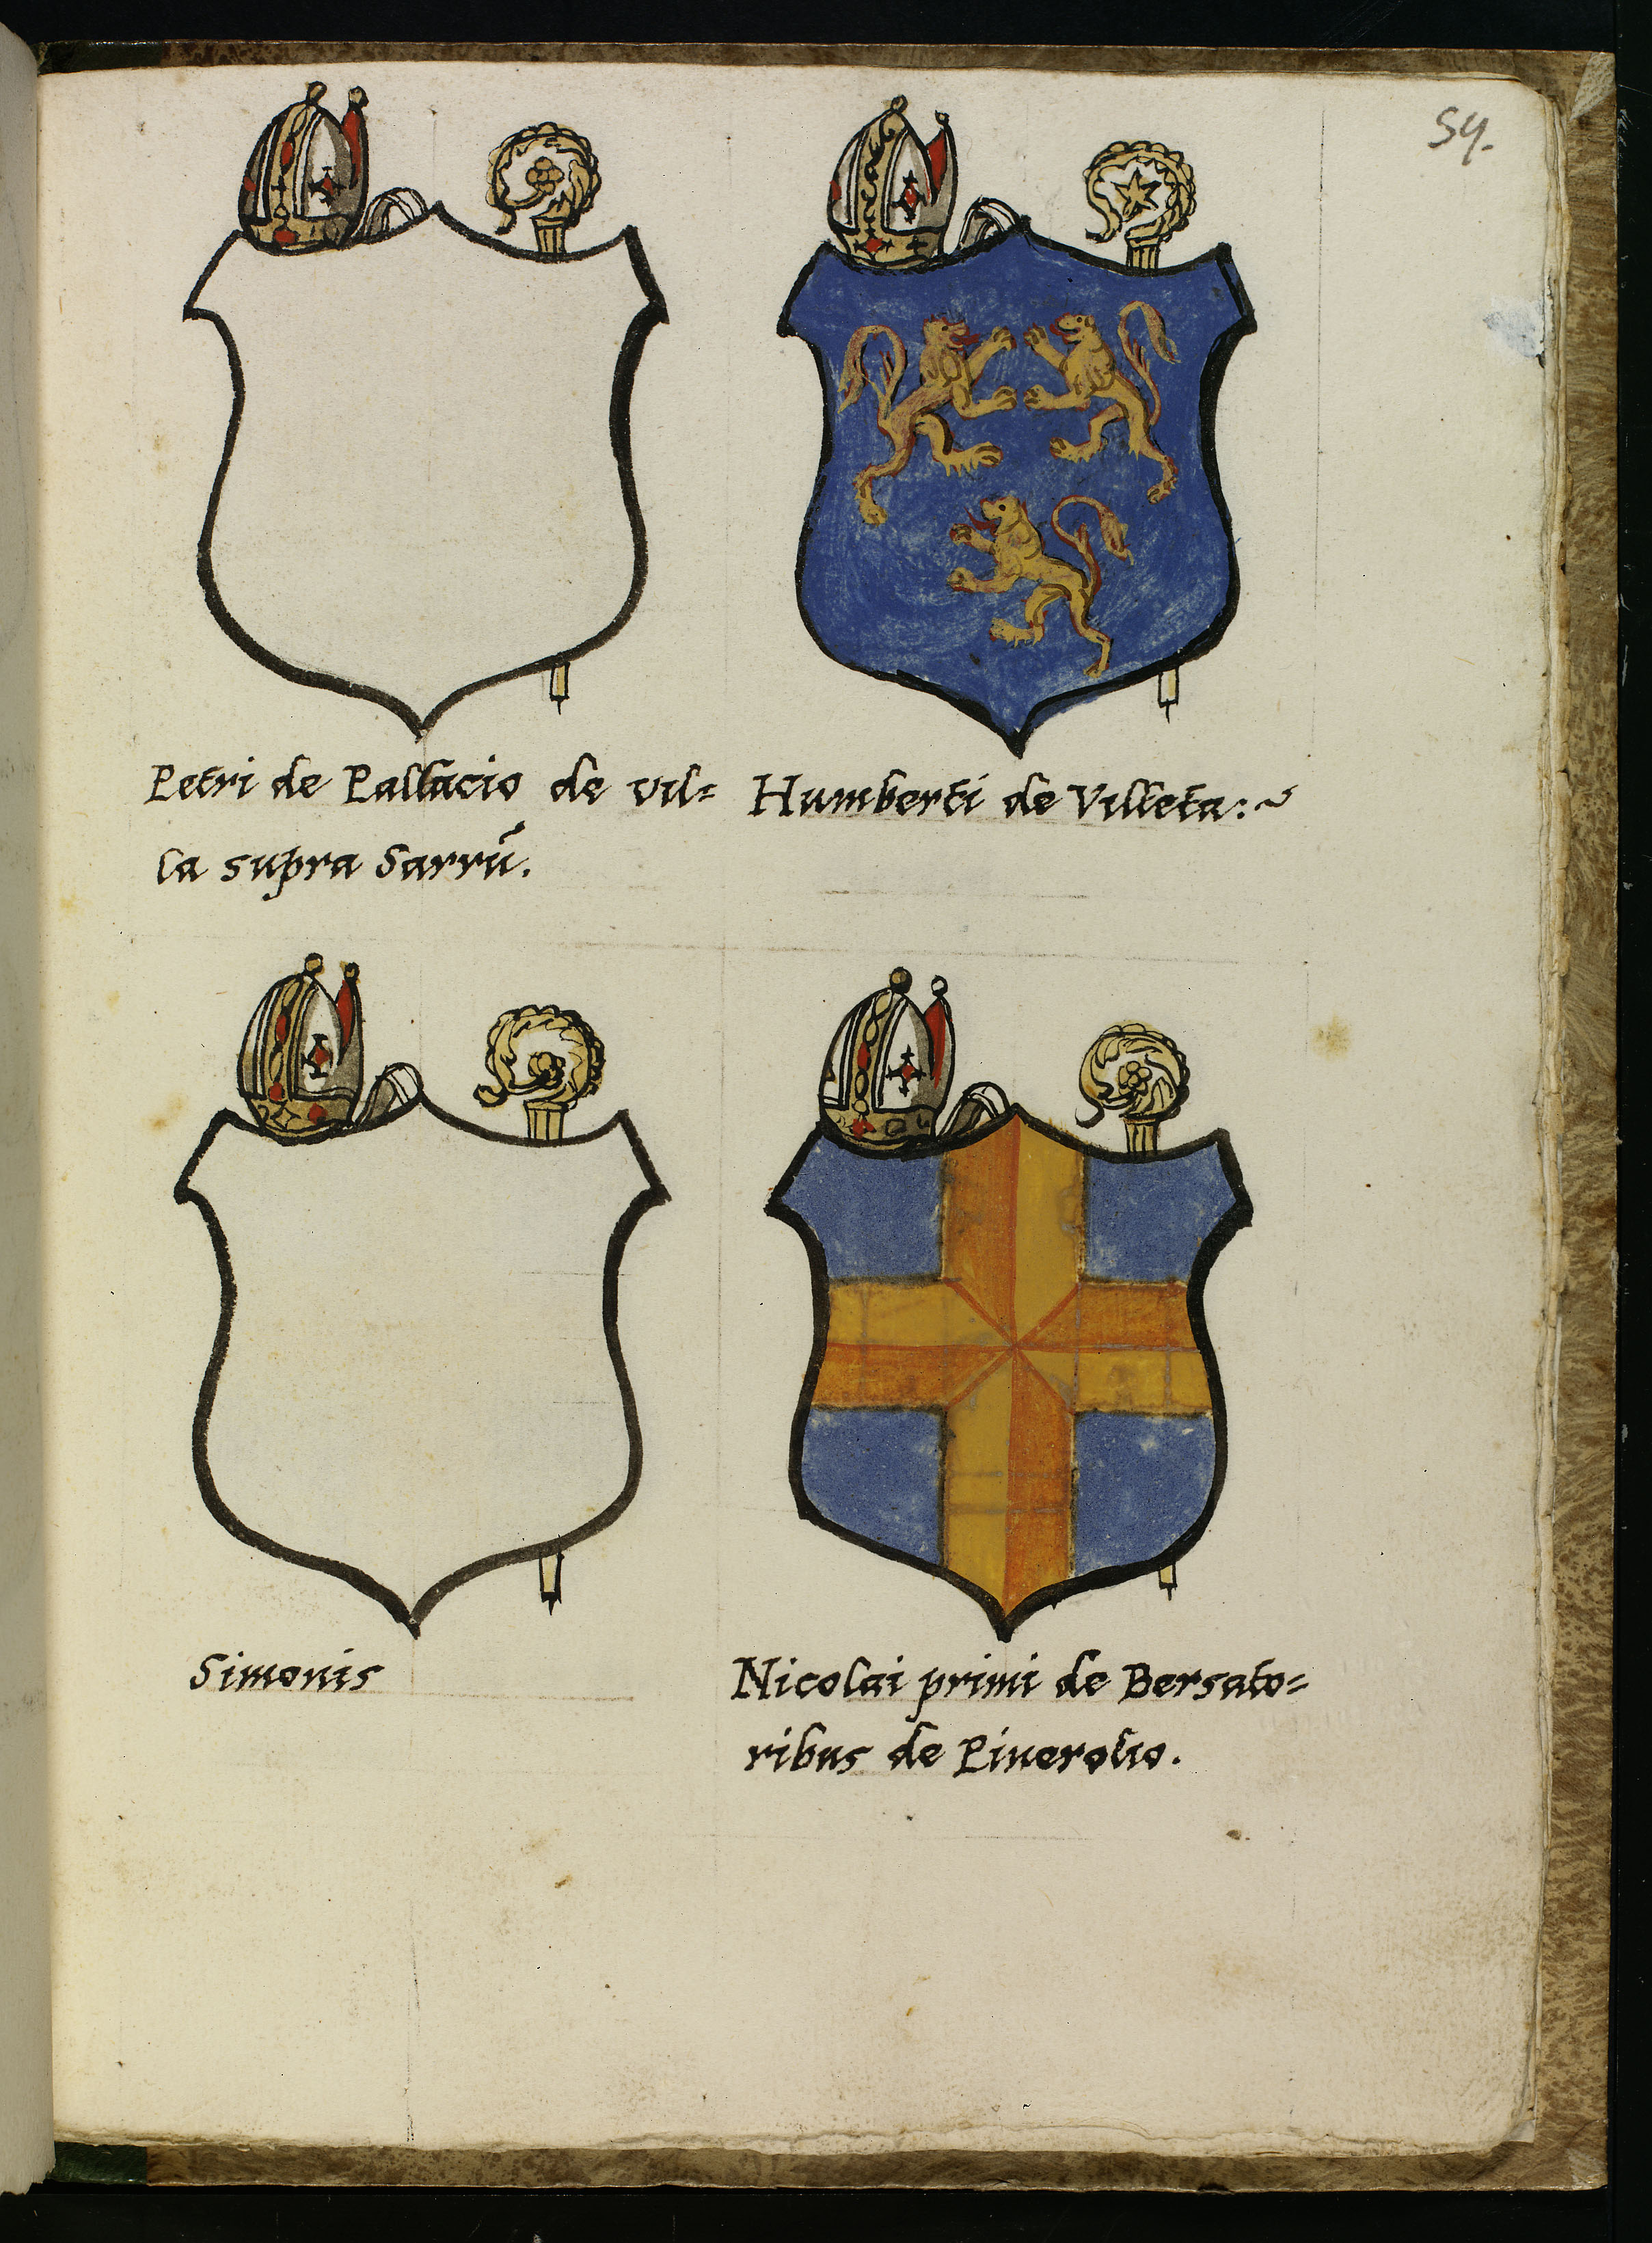 54.
Petri de Pallacio de Vil=
la supra Sarrū.
Humberti de Villeta:~
Simonis
Nicolai primi de Bersato=
ribus de Pinerolio.